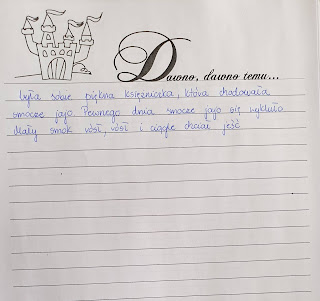 Dawno, dawno temu...
była sobie piękna księżniczka, która chodowała
smocze jajo. Pewnego dnia smocze jajo się wykluło
Mały smok rósł, rósł i ciągle chciał jeść